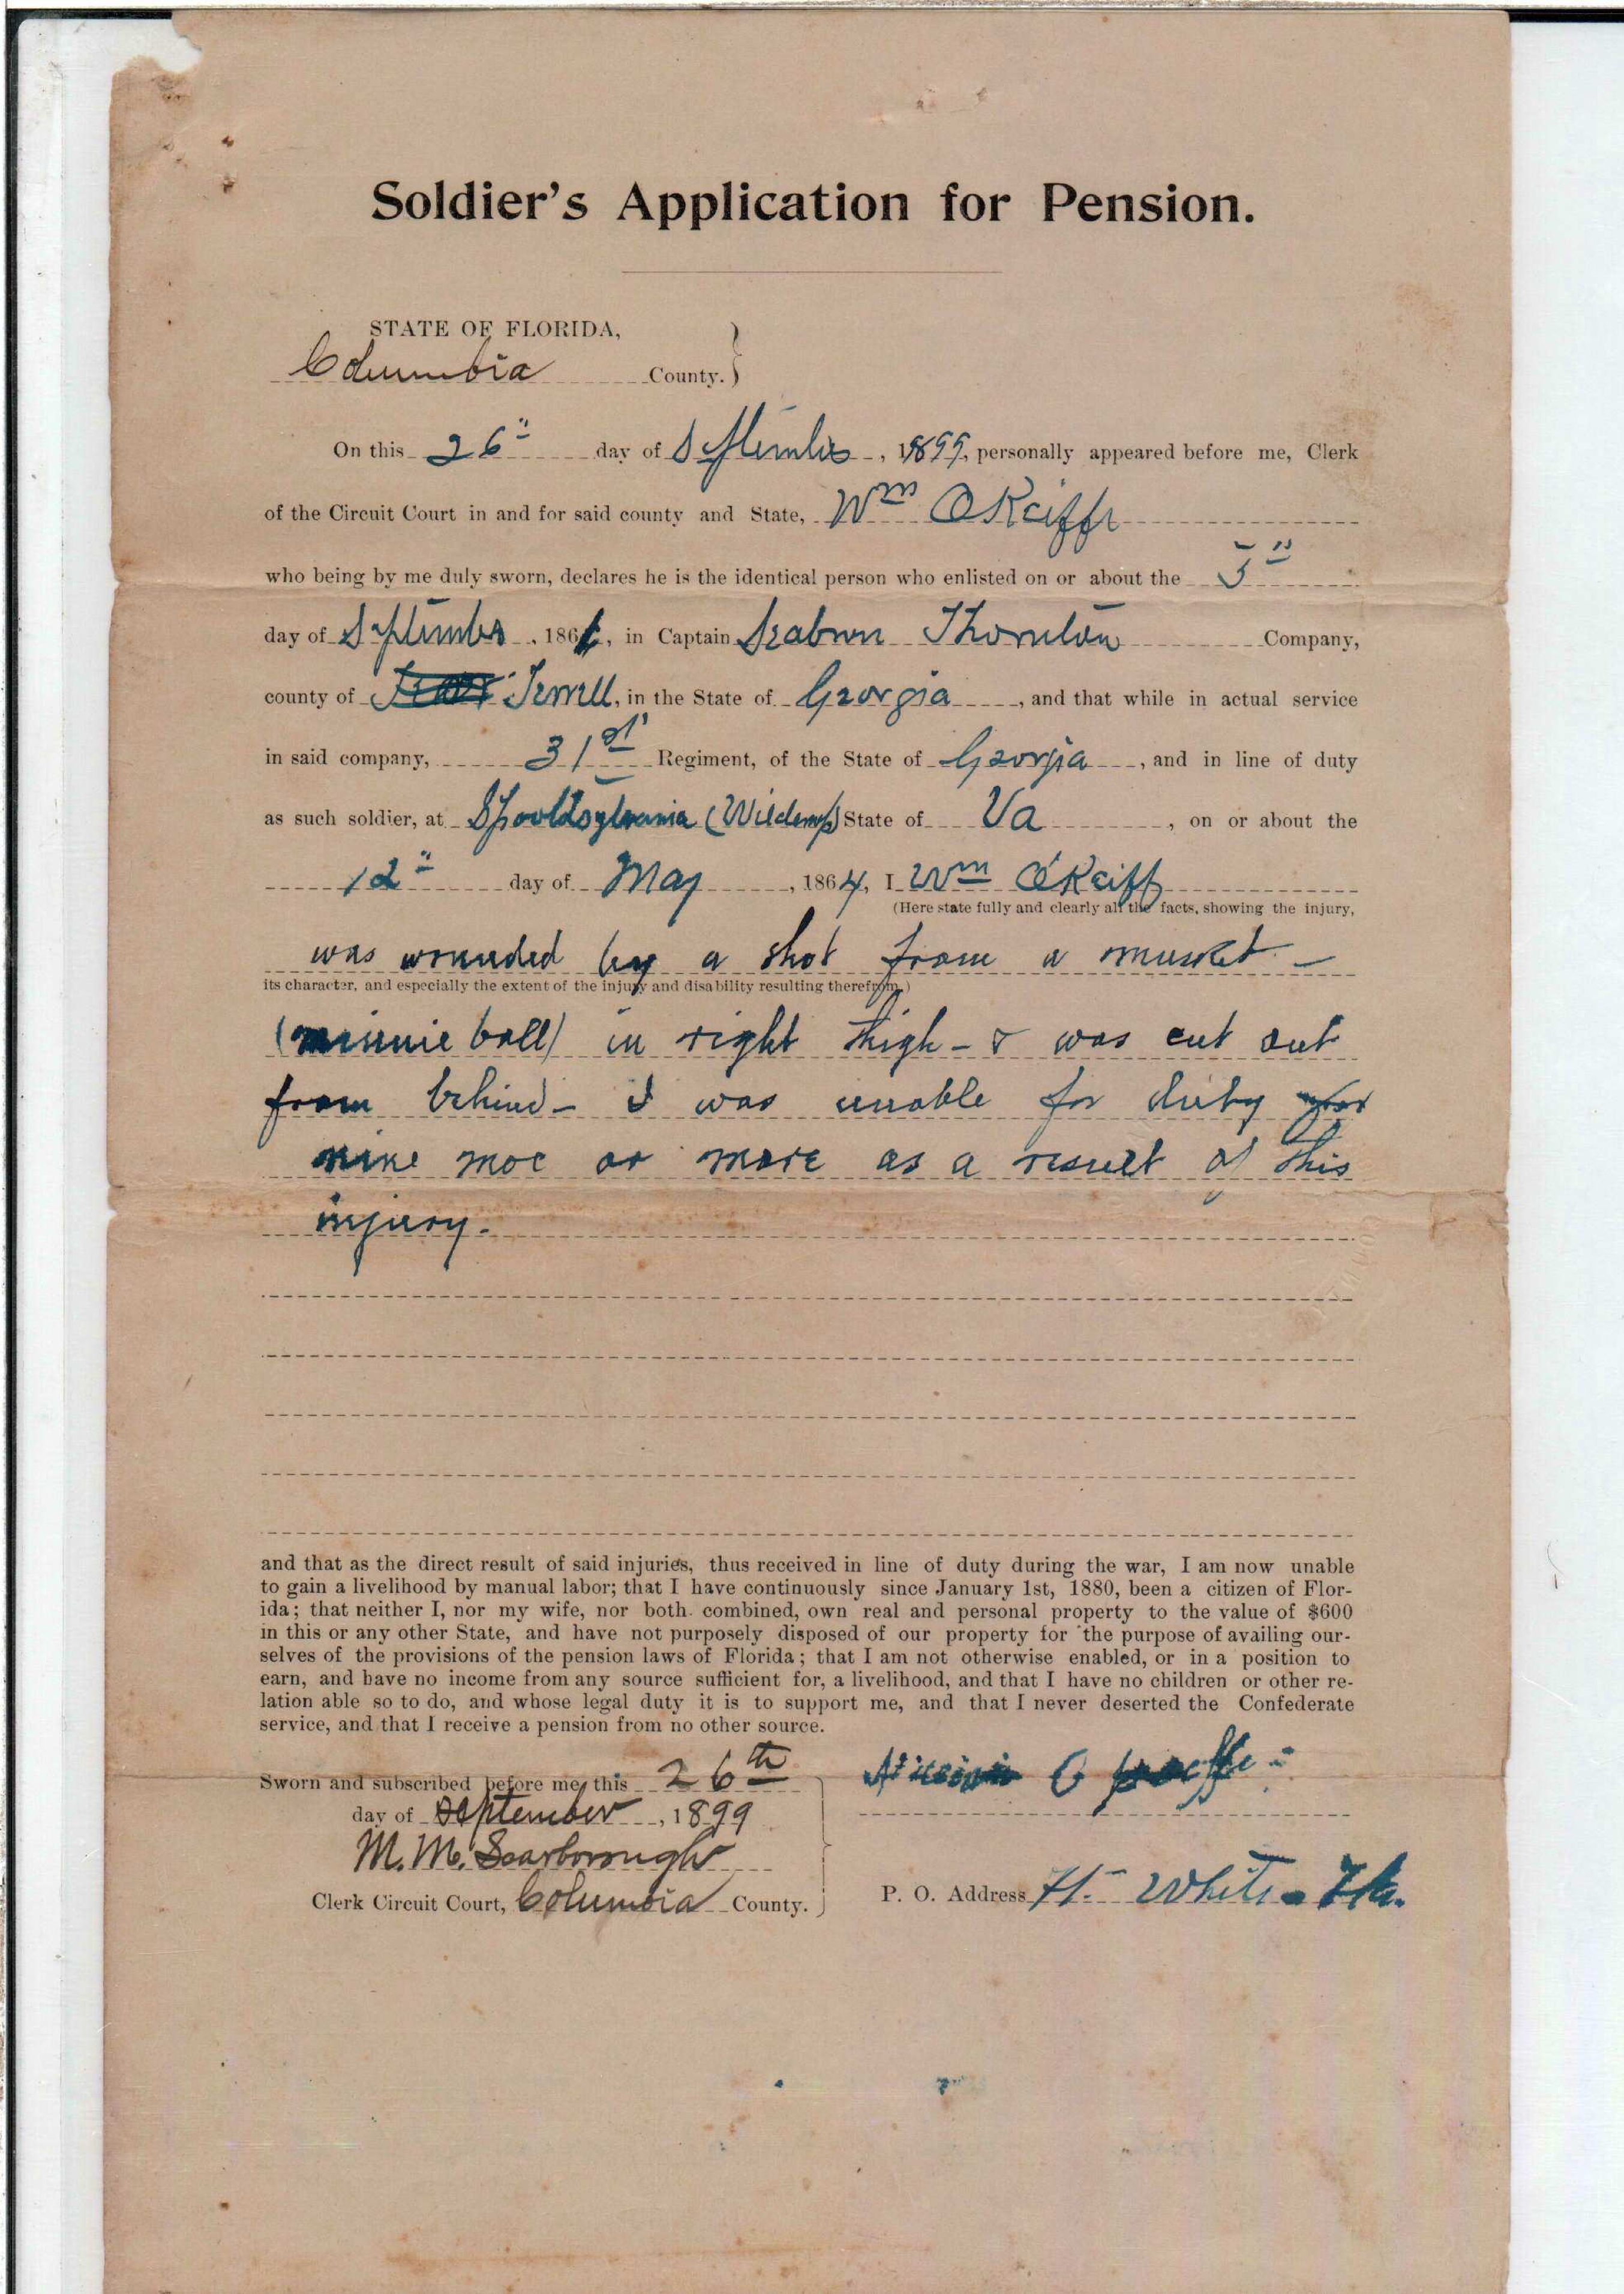 Soldier's Application for Pension.
STATE OF FLORIDA,
Columbia County.
On this 26" day of September, 1899, personally appeared before me, Clerk
of the Circuit Court in and for said county and State, Wm OKeiffe
who being by me duly sworn, declares he is the identical person who enlisted on or about the 5"
day of September, 1861, in Captain Seaborn Thornton Company,
county of Terrell, in the State of Georgia, and that while in actual service
in said company, 31st Regiment, of the State of Georgia, and in line of duty
as such soldier, at (Wilderness) State of Va, on or about the
12" day of May, 1864, I Wm O'Keiff
(Here state fully and clearly all the facts, showing the injury,
was wounded by a shot from a musket -
its character, and especially the extent of the injury and disability resulting therefrom.)
(minnie ball) in right thigh - & was cut out
from behind - I was unable for duty for
nine mos or more as a result of this
injury.
and that as the direct result of said injuries, thus received in line of duty during the war, I am now unable
to gain a livelihood by manual labor; that I have continuously since January 1st, 1880, been a citizen of Flor-
ida; that neither I, nor my wife, nor both combined, own real and personal property to the value of $600
in this or any other State, and have not purposely disposed of our property for the purpose of availing our-
selves of the provisions of the pension laws of Florida; that I am not otherwise enabled, or in a position to
earn, and have no income from any source sufficient for, a livelihood, and that I have no children or other re-
lation able so to do, and whose legal duty it is to support me, and that I never deserted the Confederate
service, and that I receive a pension from no other source.
Sworn and subscribed before me, this 26th
day of September, 1899
M. M. Scarborough
Clerk Circuit Court, Columbia County.
P. O. Address Ft. White Fla.